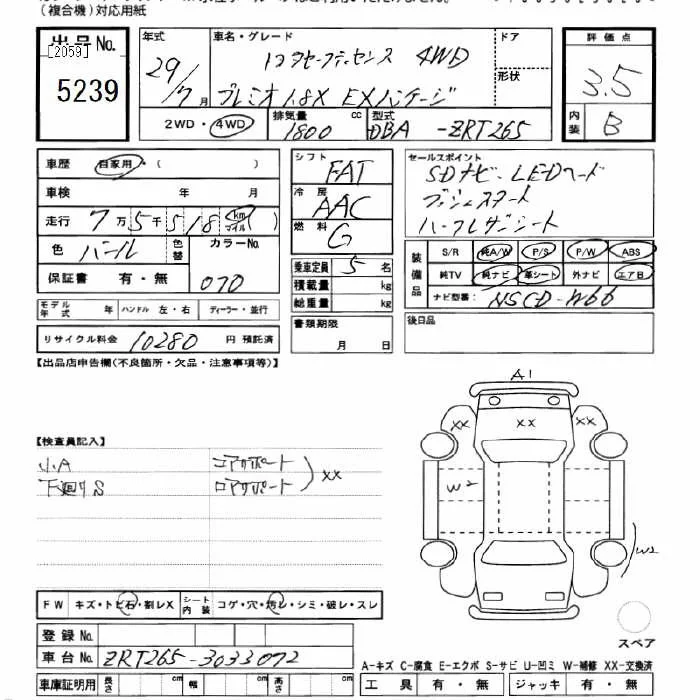 (複合機)対応用紙
出品 No.
[2059]
5239
年式
29/7月
車名・グレード
トヨタセーフティセンス 4WD
プレミオ1.8X EXパッケージ
ドア
形状
評価点
3.5
内装
B
2WD・4WD
排気量
1800
cc
型式
DBA -ZRT265
車歴
自家用・( )
車検 年 月
走行 7万5千518(km マイル)
色 パール
色替
カラーNo.
070
保証書 有・無
モデル年式 年
ハンドル 左・右
ディーラー・並行
リサイクル料金 10280 円 預託済
シフト
FAT
冷房
AAC
燃料
G
乗車定員 5 名
積載量 kg
総重量 kg
書類期限
月 日
セールスポイント
SDナビ・LEDヘード
プッシュスタート
ハーフレザーシート
装備品
S/R 純A/W P/S P/W ABS
純TV 純ナビ 革シート 外ナビ エアB
ナビ型番: NSCD-W66
後日品
【出品店申告欄(不良箇所・欠品・注意事項等)】
【検査員記入】
小A
下廻りS
コアサポート
ロアサポート
XX
A1
XX
XX
XX
W2
W2
スペア
FW キズ・トビ石・割レX
シート内装 コゲ・穴・汚レ・シミ・破レ・スレ
登録 No.
車台 No. ZRT265-3033072
車庫証明用 長さ cm 幅 cm 高さ cm
A-キズ C-腐食 E-エクボ S-サビ U-凹ミ W-補修 XX-交換済
工具 有・無 ジャッキ 有・無